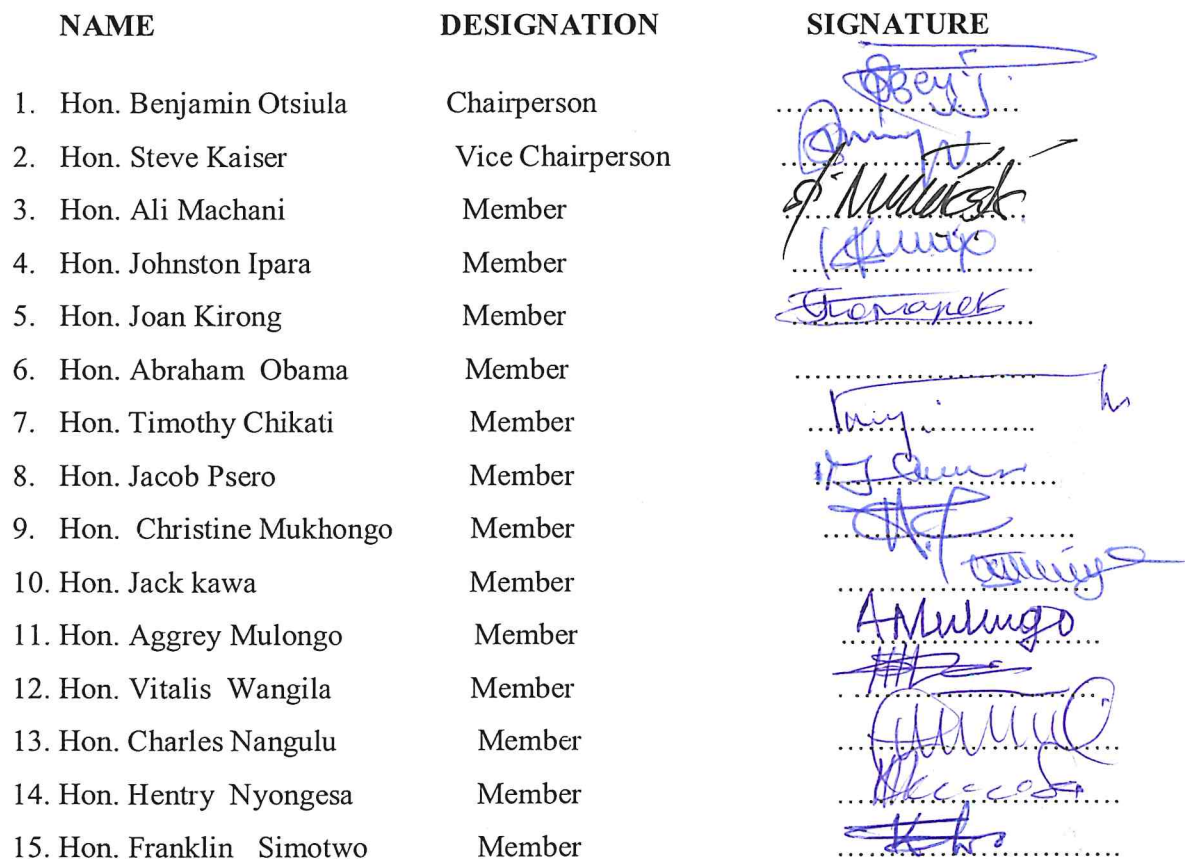 NAME DESIGNATION SIGNATURE
1. Hon. Benjamin Otsiula Chairperson ..............................
2. Hon. Steve Kaiser Vice Chairperson ..............................
3. Hon. Ali Machani Member ..............................
4. Hon. Johnston Ipara Member ..............................
5. Hon. Joan Kirong Member ..............................
6. Hon. Abraham Obama Member ..............................
7. Hon. Timothy Chikati Member ..............................
8. Hon. Jacob Psero Member ..............................
9. Hon. Christine Mukhongo Member ..............................
10. Hon. Jack kawa Member ..............................
11. Hon. Aggrey Mulongo Member AMulungo
12. Hon. Vitalis Wangila Member ..............................
13. Hon. Charles Nangulu Member ..............................
14. Hon. Hentry Nyongesa Member ..............................
15. Hon. Franklin Simotwo Member ..............................